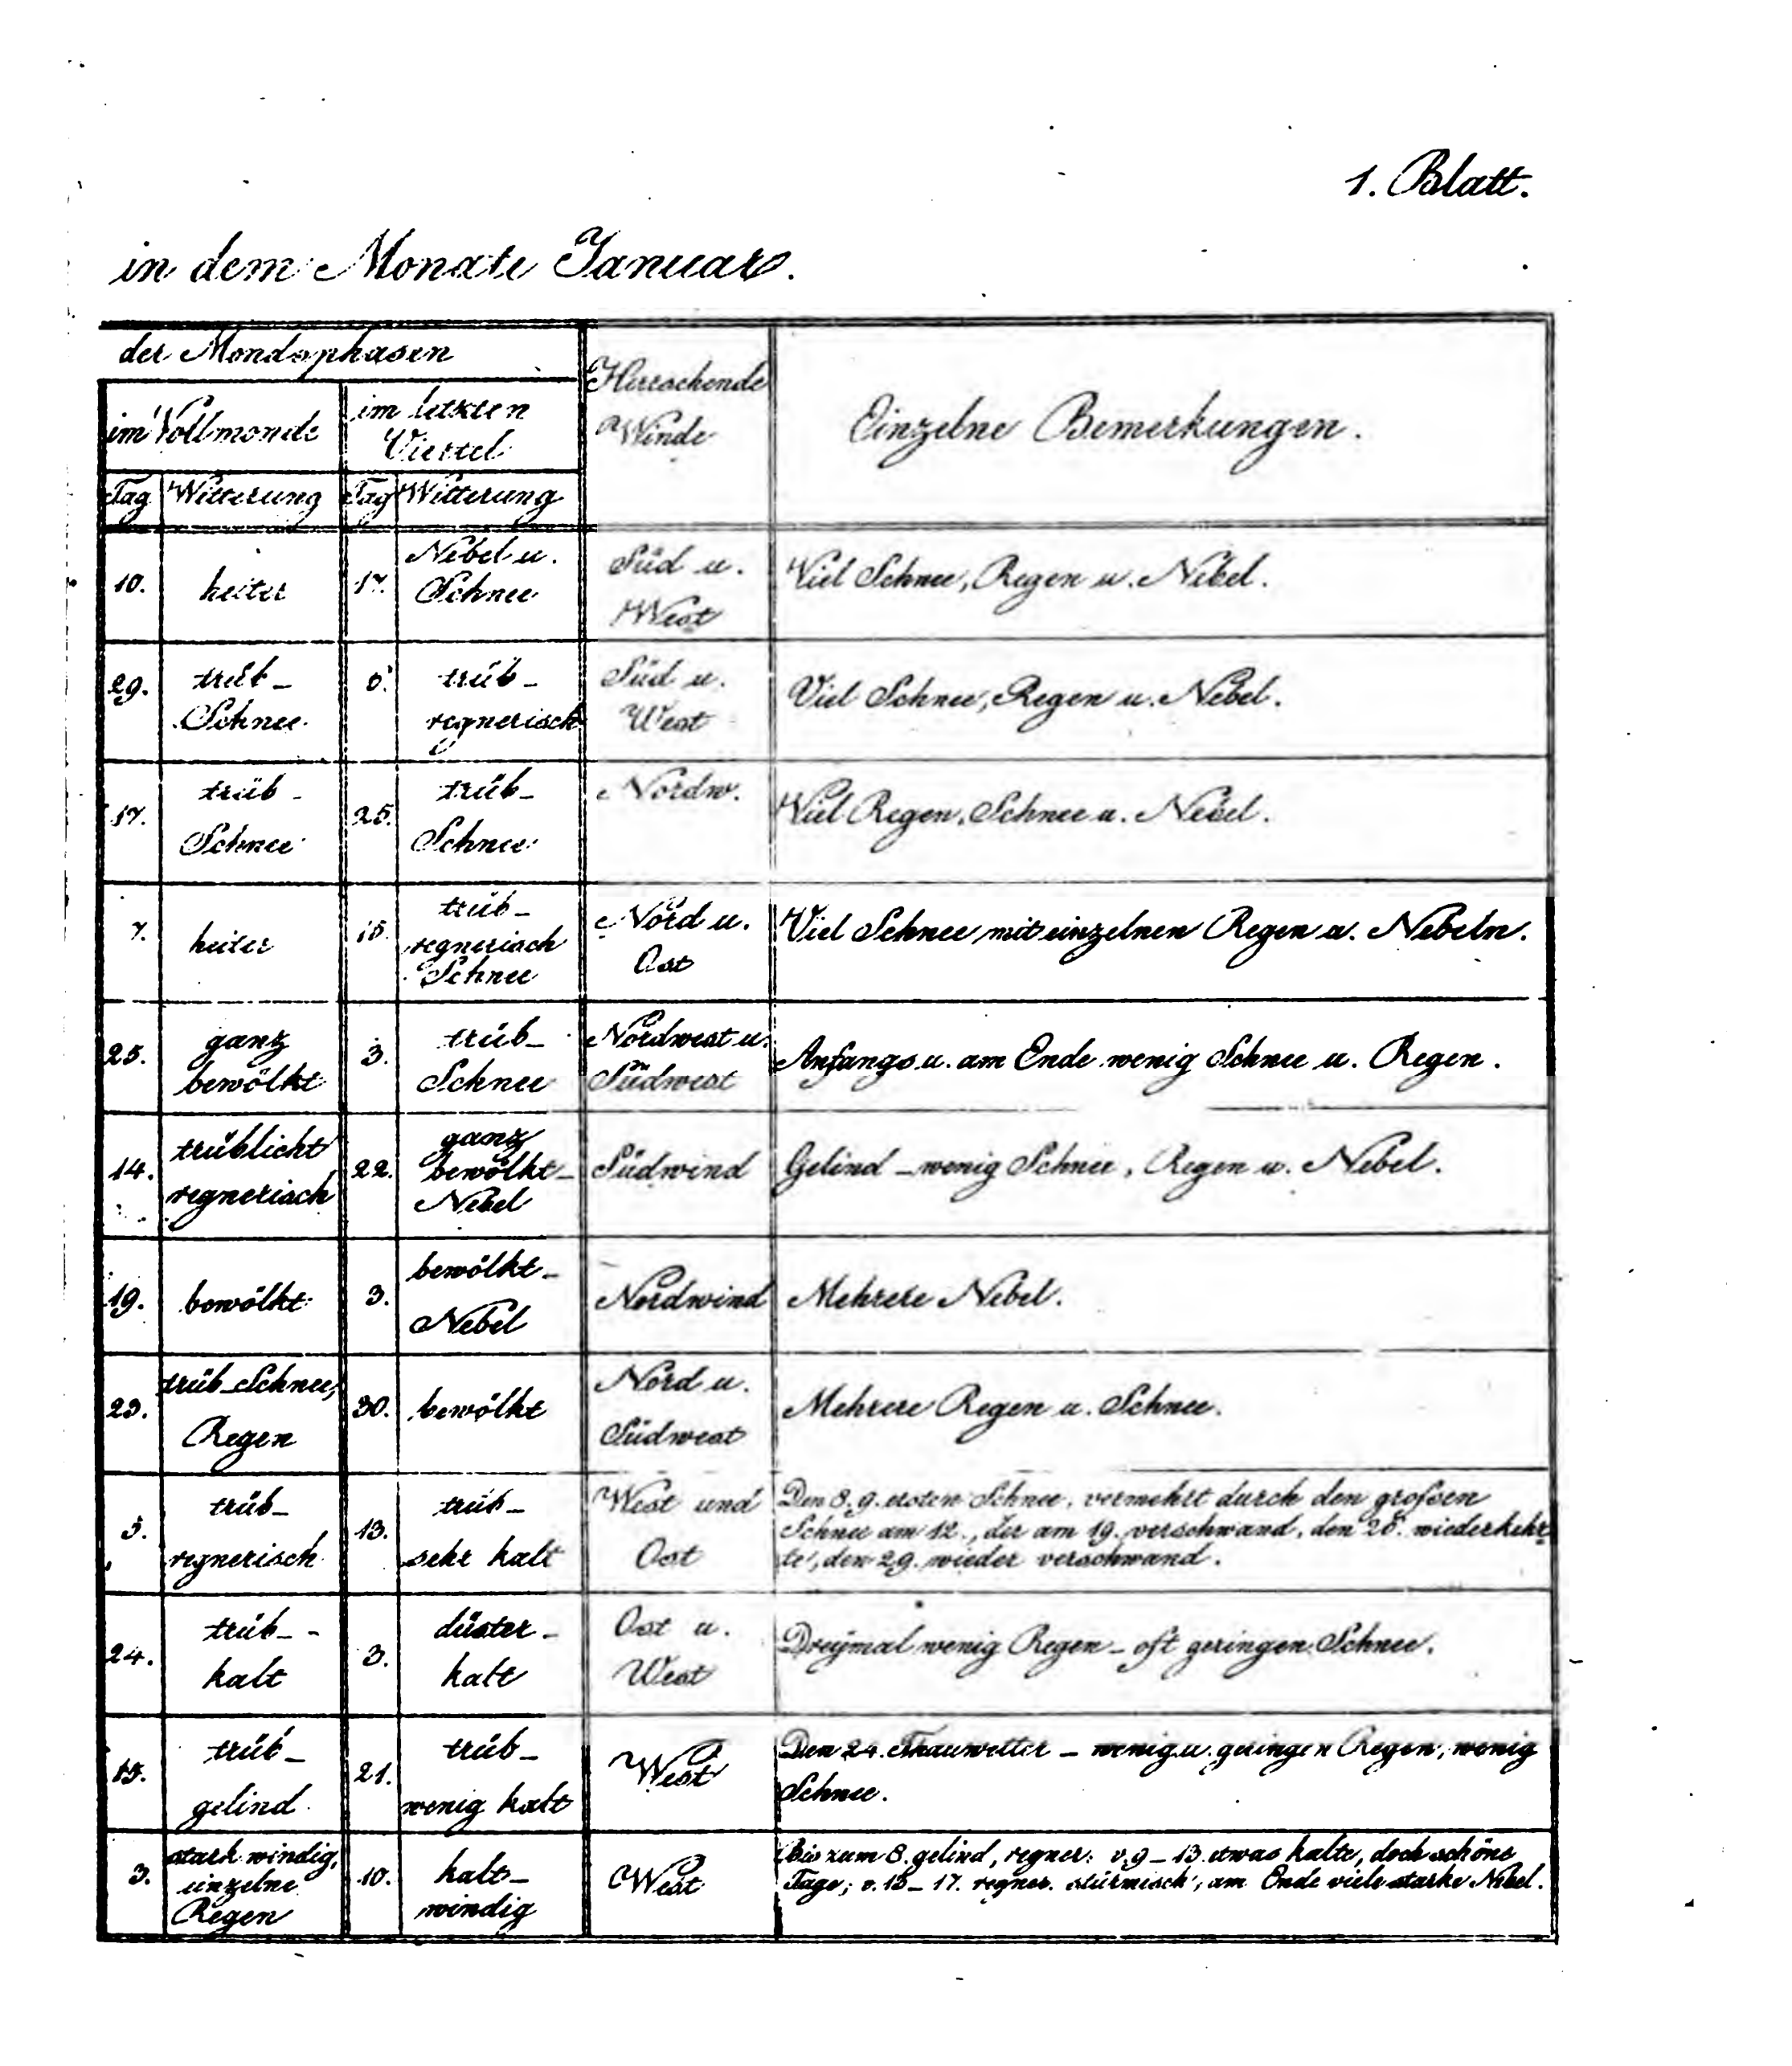 1. Blatt.
in dem Monate Januar.
der Mondsphasen
Herrschende
Winde
Einzelne Bemerkungen.
im Vollmonde
im letzten
Viertel
Tag Witterung Tag Witterung
10. heiter 17. Nebel u.
Schnee
Süd u.
West
Viel Schnee, Regen u. Nebel.
29. trüb_
Schnee
trüb_
regnerisch
Süd u.
West
Viel Schnee, Regen u. Nebel.
17. trüb_
Schnee
25. trüb_
Schnee
Nordw.
Viel Regen, Schnee u. Nebel.
7. heiter
15. trüb_
regnerisch
Schnee
Nord u.
Ost
Viel Schnee mit einzelnen Regen u. Nebeln.
25. ganz
bewölkt
3. trüb_
Schnee
Nordwest u.
Südwest
Anfangs u. am Ende wenig Schnee u. Regen.
14. trüblicht
regnerisch
22. ganz
bewölkt_
Nebel
Südwind
Gelind_wenig Schnee, Regen u. Nebel.
19. bewölkt
3. bewölkt_
Nebel
Nordwind
Mehrere Nebel.
23. trüb_Schnee,
Regen
30. bewölkt
Nord u.
Südwest
Mehrere Regen u. Schnee.
5. trüb_
regnerisch
13. trüb_
sehr kalt
West und
Ost
Den 8. 9. ersten Schnee, vermehrt durch den großen
Schnee am 12., der am 19. verschwand, den 28. wiederkehr
te, den 29. wieder verschwand.
24. trüb_
kalt
3. düster_
kalt
Ost u.
West
Dreymal wenig Regen_oft geringen Schnee.
15. trüb_
gelind
21. trüb_
wenig kalt
West
Den 24. Thauwetter_wenig u. geringen Regen, wenig
Schnee.
3. stark windig,
einzelne
Regen
10. kalt_
windig
West
Bis zum 8. gelind, regner. v. 9_13. etwas kalte, doch schöne
Tage; v. 13_17. regner. stürmisch, am Ende viele starke Nebel.